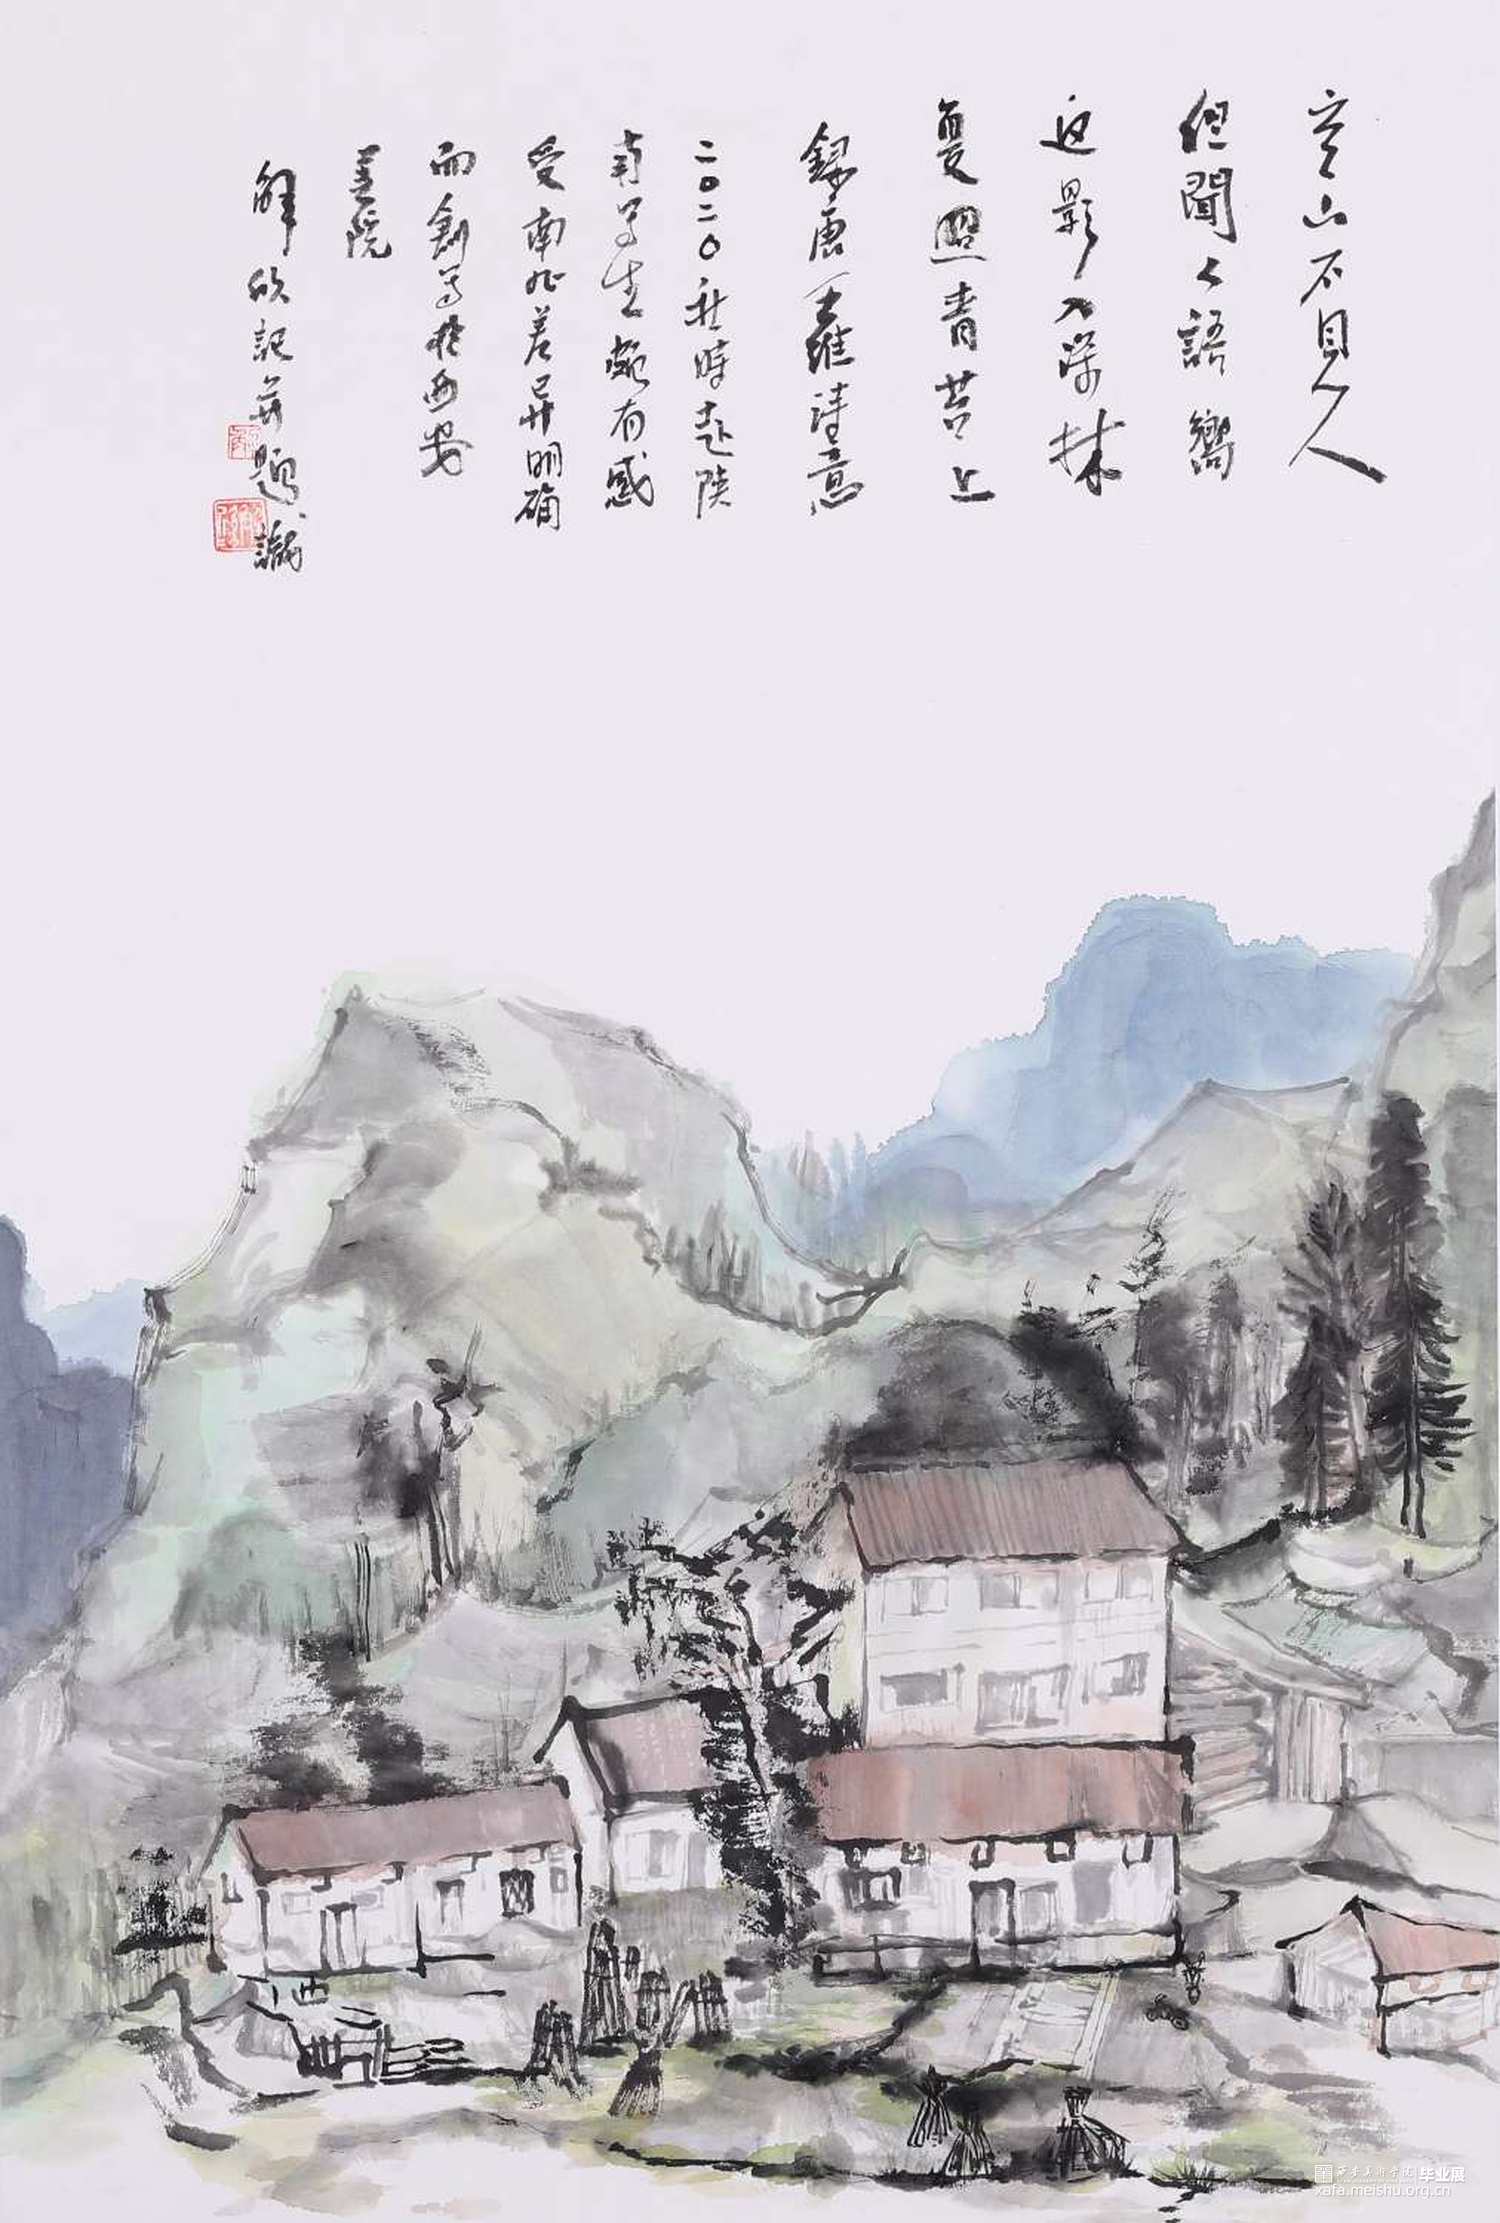 空山不見人
但聞人語響
返影入深林
复照青苔上
録唐王維詩意
二〇二〇秋時赴陕
南写生頗有感
受南北差异明确
而創写於西安
美院
解欣記并題識
西安美术学院 毕业展
xafa.meishu.org.cn